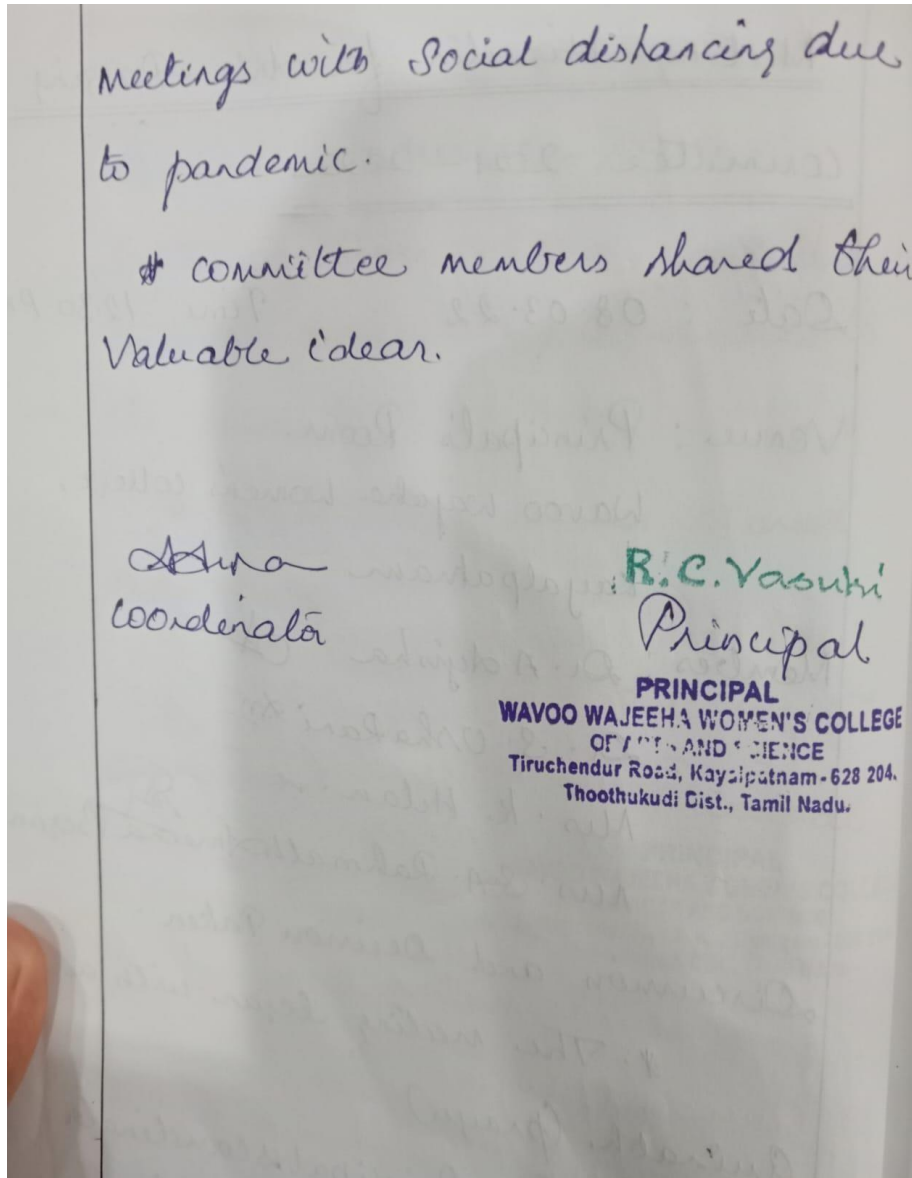 Meetings with Social distancing due
to pandemic.
* committee members shared their
Valuable idear.
Coordinator
R.C. Vasuki
Principal
PRINCIPAL
WAVOO WAJEEHA WOMEN'S COLLEGE
OF ARTS AND SCIENCE
Tiruchendur Road, Kayalpatnam-628 204.
Thoothukudi Dist., Tamil Nadu.